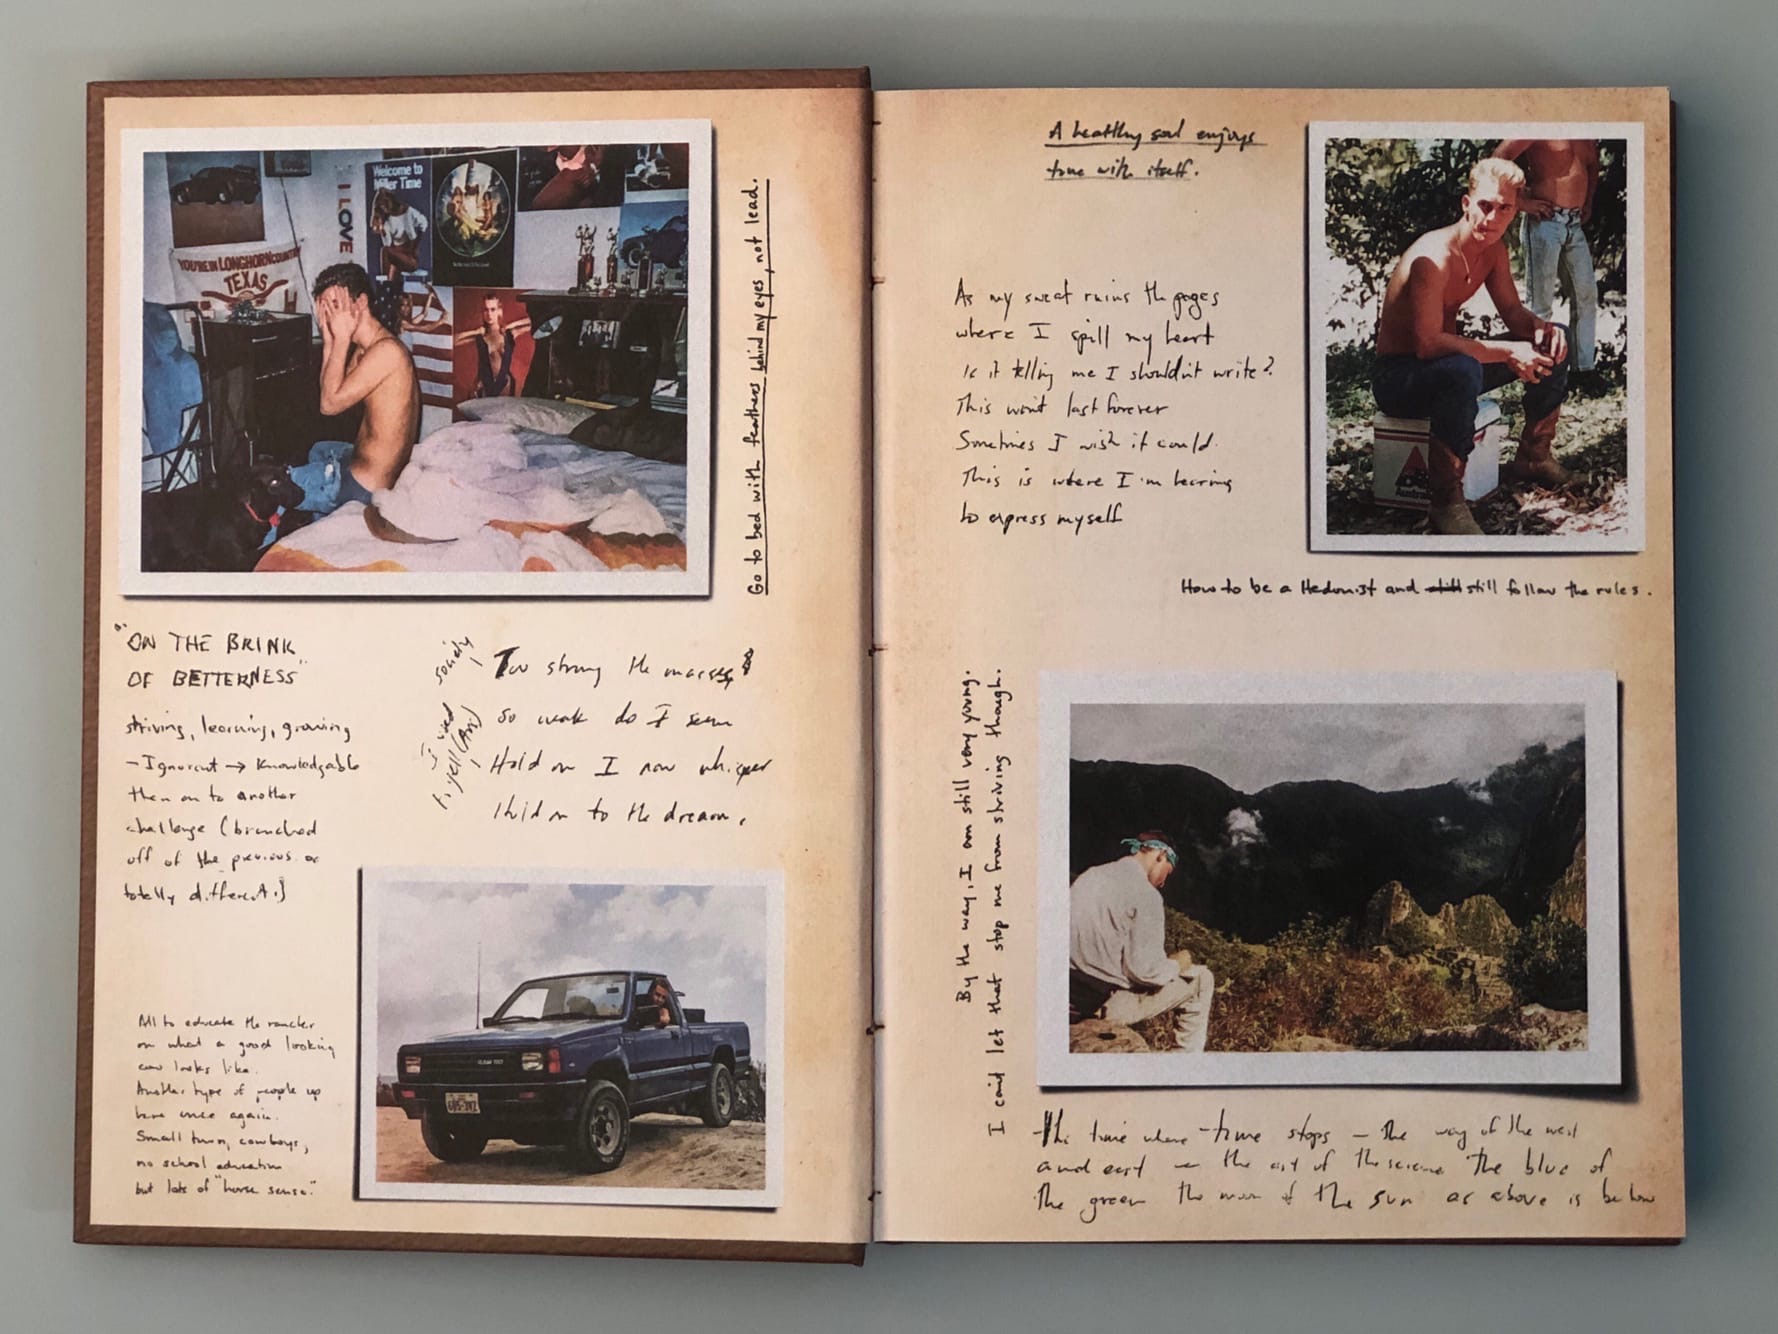 Welcome to
Miller Time
I LOVE
YOU'RE IN LONGHORN COUNTRY
TEXAS
Go to bed with feathers behind my eyes, not lead.
"ON THE BRINK
OF BETTERNESS"
striving, learning, growing
- Ignorant → Knowledgable
then on to another
challenge (branched
off of the previous or
totally different.)
society
I need
to yell
Too strong the masses
So weak do I seem
Hold on I now whisper
Hold on to the dream.
All to educate the rancher
on what a good looking
cow looks like.
Another type of people up
here once again.
Small town, cowboys,
no school education
but lots of "horse sense."
A healthy soul enjoys
time with itself.
As my sweat ruins the pages
where I spill my heart
Is it telling me I shouldn't write?
This won't last forever
Sometimes I wish it could.
This is where I'm learning
to express myself
How to be a Hedonist and still still follow the rules.
By the way, I am still very young.
I can't let that stop me from striving though.
The time where time stops – the way of the west
and east – the art of the science the blue of
the green the moon of the sun as above is below